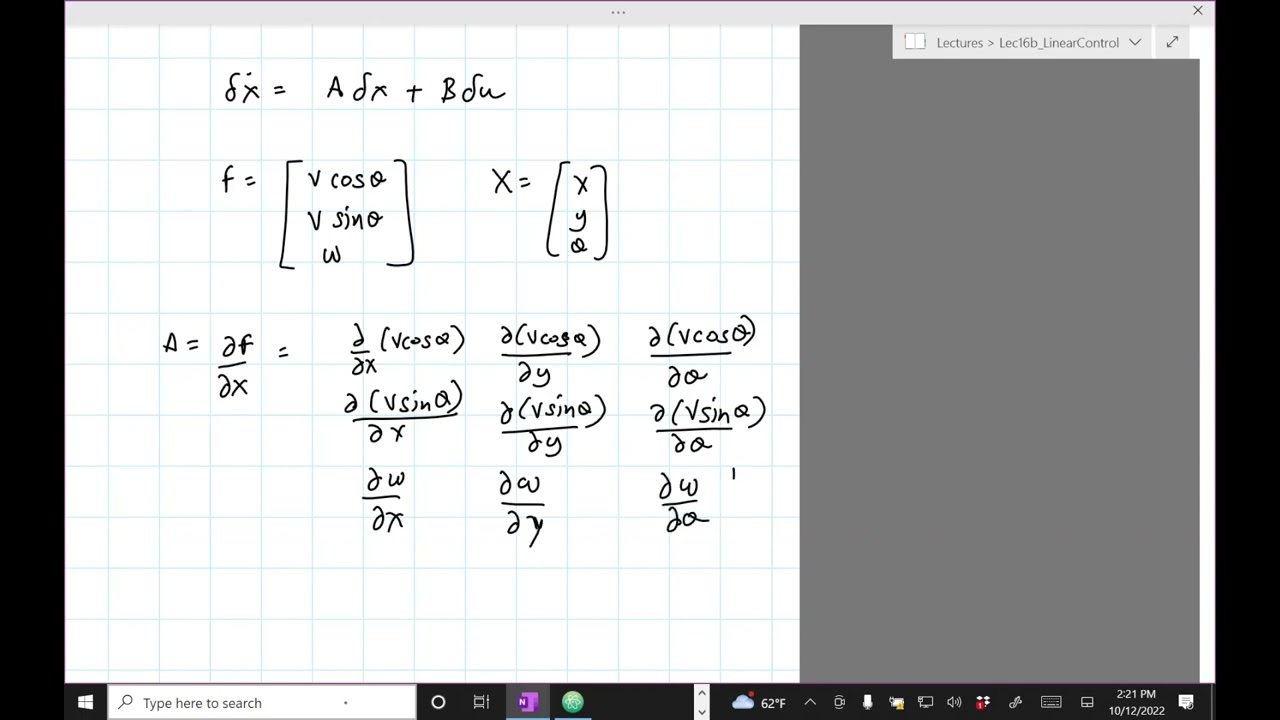 ...
Lectures > Lec16b_LinearControl
δẋ = A δx + B δu
f = [ v cosθ
v sinθ
ω ]
X = [ x
y
θ ]
A = ∂f/∂x = ∂/∂x (v cosθ) ∂(v cosθ)/∂y ∂(v cosθ)/∂θ
∂(v sinθ)/∂x ∂(v sinθ)/∂y ∂(v sinθ)/∂θ
∂ω/∂x ∂ω/∂y ∂ω/∂θ
Type here to search
62°F
2:21 PM
10/12/2022